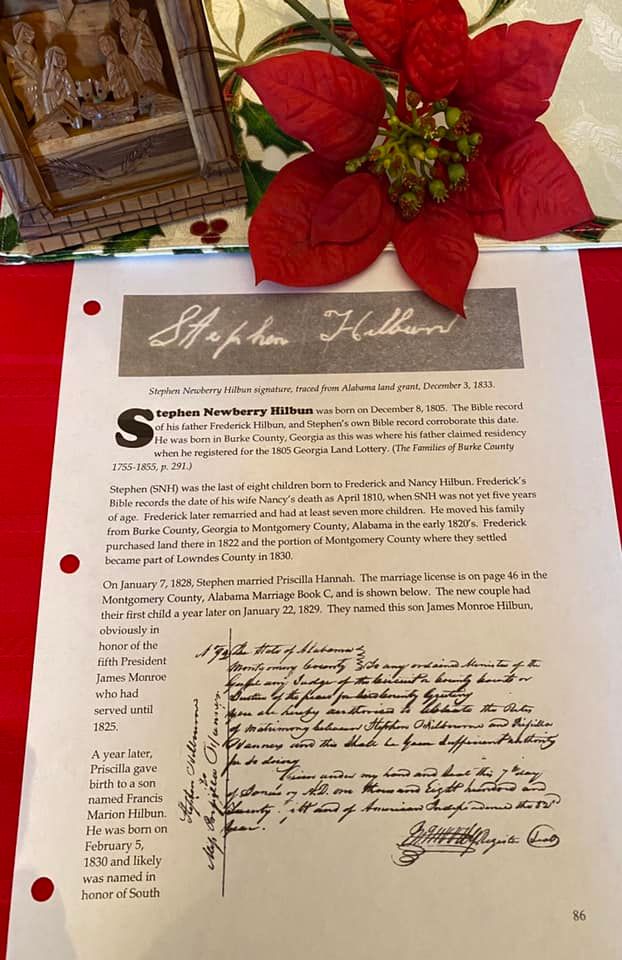 Stephen Hilbun
Stephen Newberry Hilbun signature, traced from Alabama land grant, December 3, 1833.
Stephen Newberry Hilbun was born on December 8, 1805. The Bible record
of his father Frederick Hilbun, and Stephen's own Bible record corroborate this date.
He was born in Burke County, Georgia as this was where his father claimed residency
when he registered for the 1805 Georgia Land Lottery. (The Families of Burke County
1755-1855, p. 291.)
Stephen (SNH) was the last of eight children born to Frederick and Nancy Hilbun. Frederick's
Bible records the date of his wife Nancy's death as April 1810, when SNH was not yet five years
of age. Frederick later remarried and had at least seven more children. He moved his family
from Burke County, Georgia to Montgomery County, Alabama in the early 1820's. Frederick
purchased land there in 1822 and the portion of Montgomery County where they settled
became part of Lowndes County in 1830.
On January 7, 1828, Stephen married Priscilla Hannah. The marriage license is on page 46 in the
Montgomery County, Alabama Marriage Book C, and is shown below. The new couple had
their first child a year later on January 22, 1829. They named this son James Monroe Hilbun,
obviously in
honor of the
fifth President
James Monroe
who had
served until
1825.
A year later,
Priscilla gave
birth to a son
named Francis
Marion Hilbun.
He was born on
February 5,
1830 and likely
was named in
honor of South
The State of Alabama
Montgomery County To any ordained Minister of the
Gospel any Judge of the Circuit or County Courts or
Justice of the peace for said County Greeting
you are hereby authorised to celebrate the Rites
of Matrimony between Stephen and
and this shall be your sufficient authority
for so doing
Given under my hand and seal this 7th day
of A.D. one thousand Eight hundred and
and of American Independence the 52d
year.
Register (Seal)
Stephen
to
86